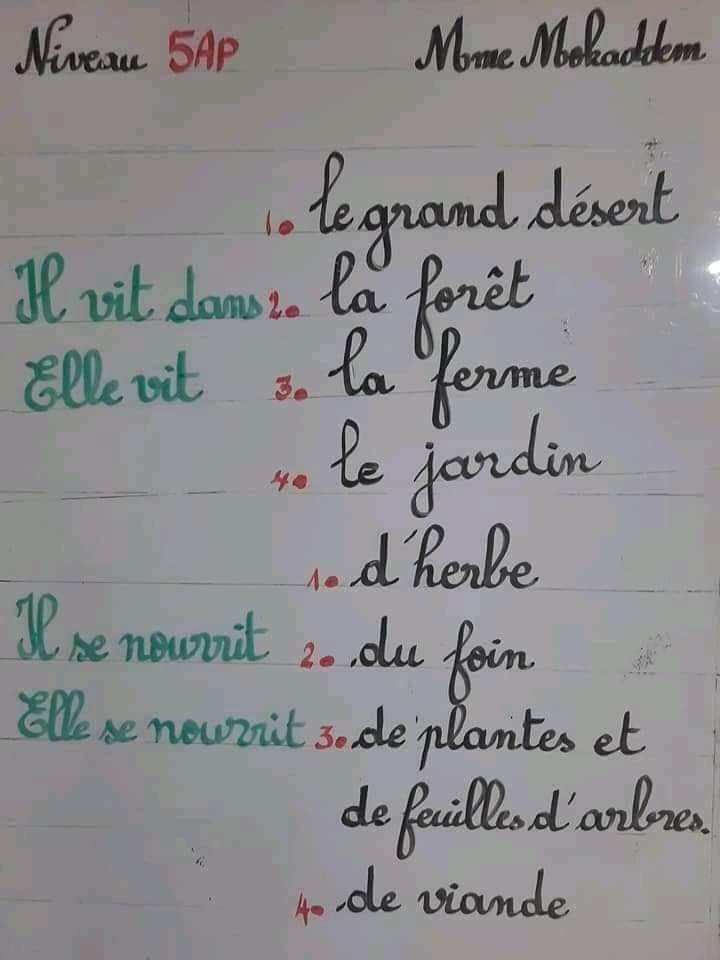 Niveau 5AP Mme Mokaddem
1. le grand désert
Il vit dans 2. la forêt
Elle vit 3. la ferme
4. le jardin
1. d'herbe
Il se nourrit 2. du foin
Elle se nourrit 3. de plantes et
de feuilles d'arbres.
4. de viande